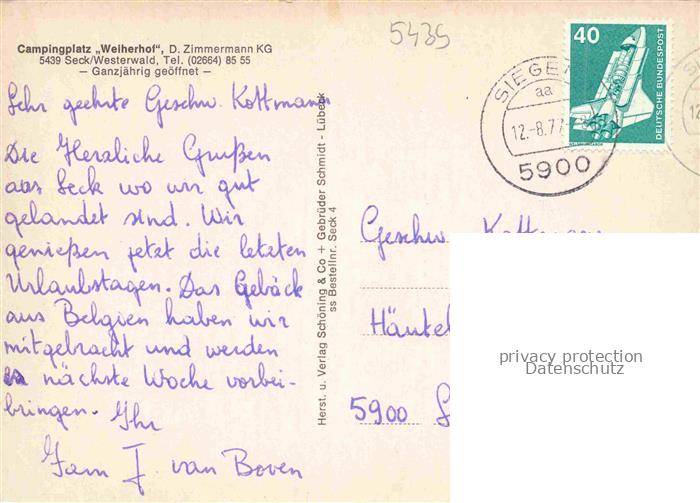 Campingplatz „Weiherhof“, D. Zimmermann KG
5439 Seck/Westerwald, Tel. (02664) 85 55
— Ganzjährig geöffnet —
Sehr geehrte Geschw. Kottmann
Die Herzliche Grußen
aus Seck wo wir gut
gelandet sind. Wir
genießen jetzt die letzten
Urlaubstagen. Das Gebäck
aus Belgien haben wir
mitgebracht und werden
nächste Woche vorbei-
bringen. Ihr
Fam J. van Boven
Herst. u. Verlag Schöning & Co + Gebrüder Schmidt - Lübeck
ss Bestellnr. Seck 4
5439
SIEGEN
aa
12.-8.77
5900
40
DEUTSCHE BUNDESPOST
Geschw. Kottmann
Häutel
5900
privacy protection
Datenschutz